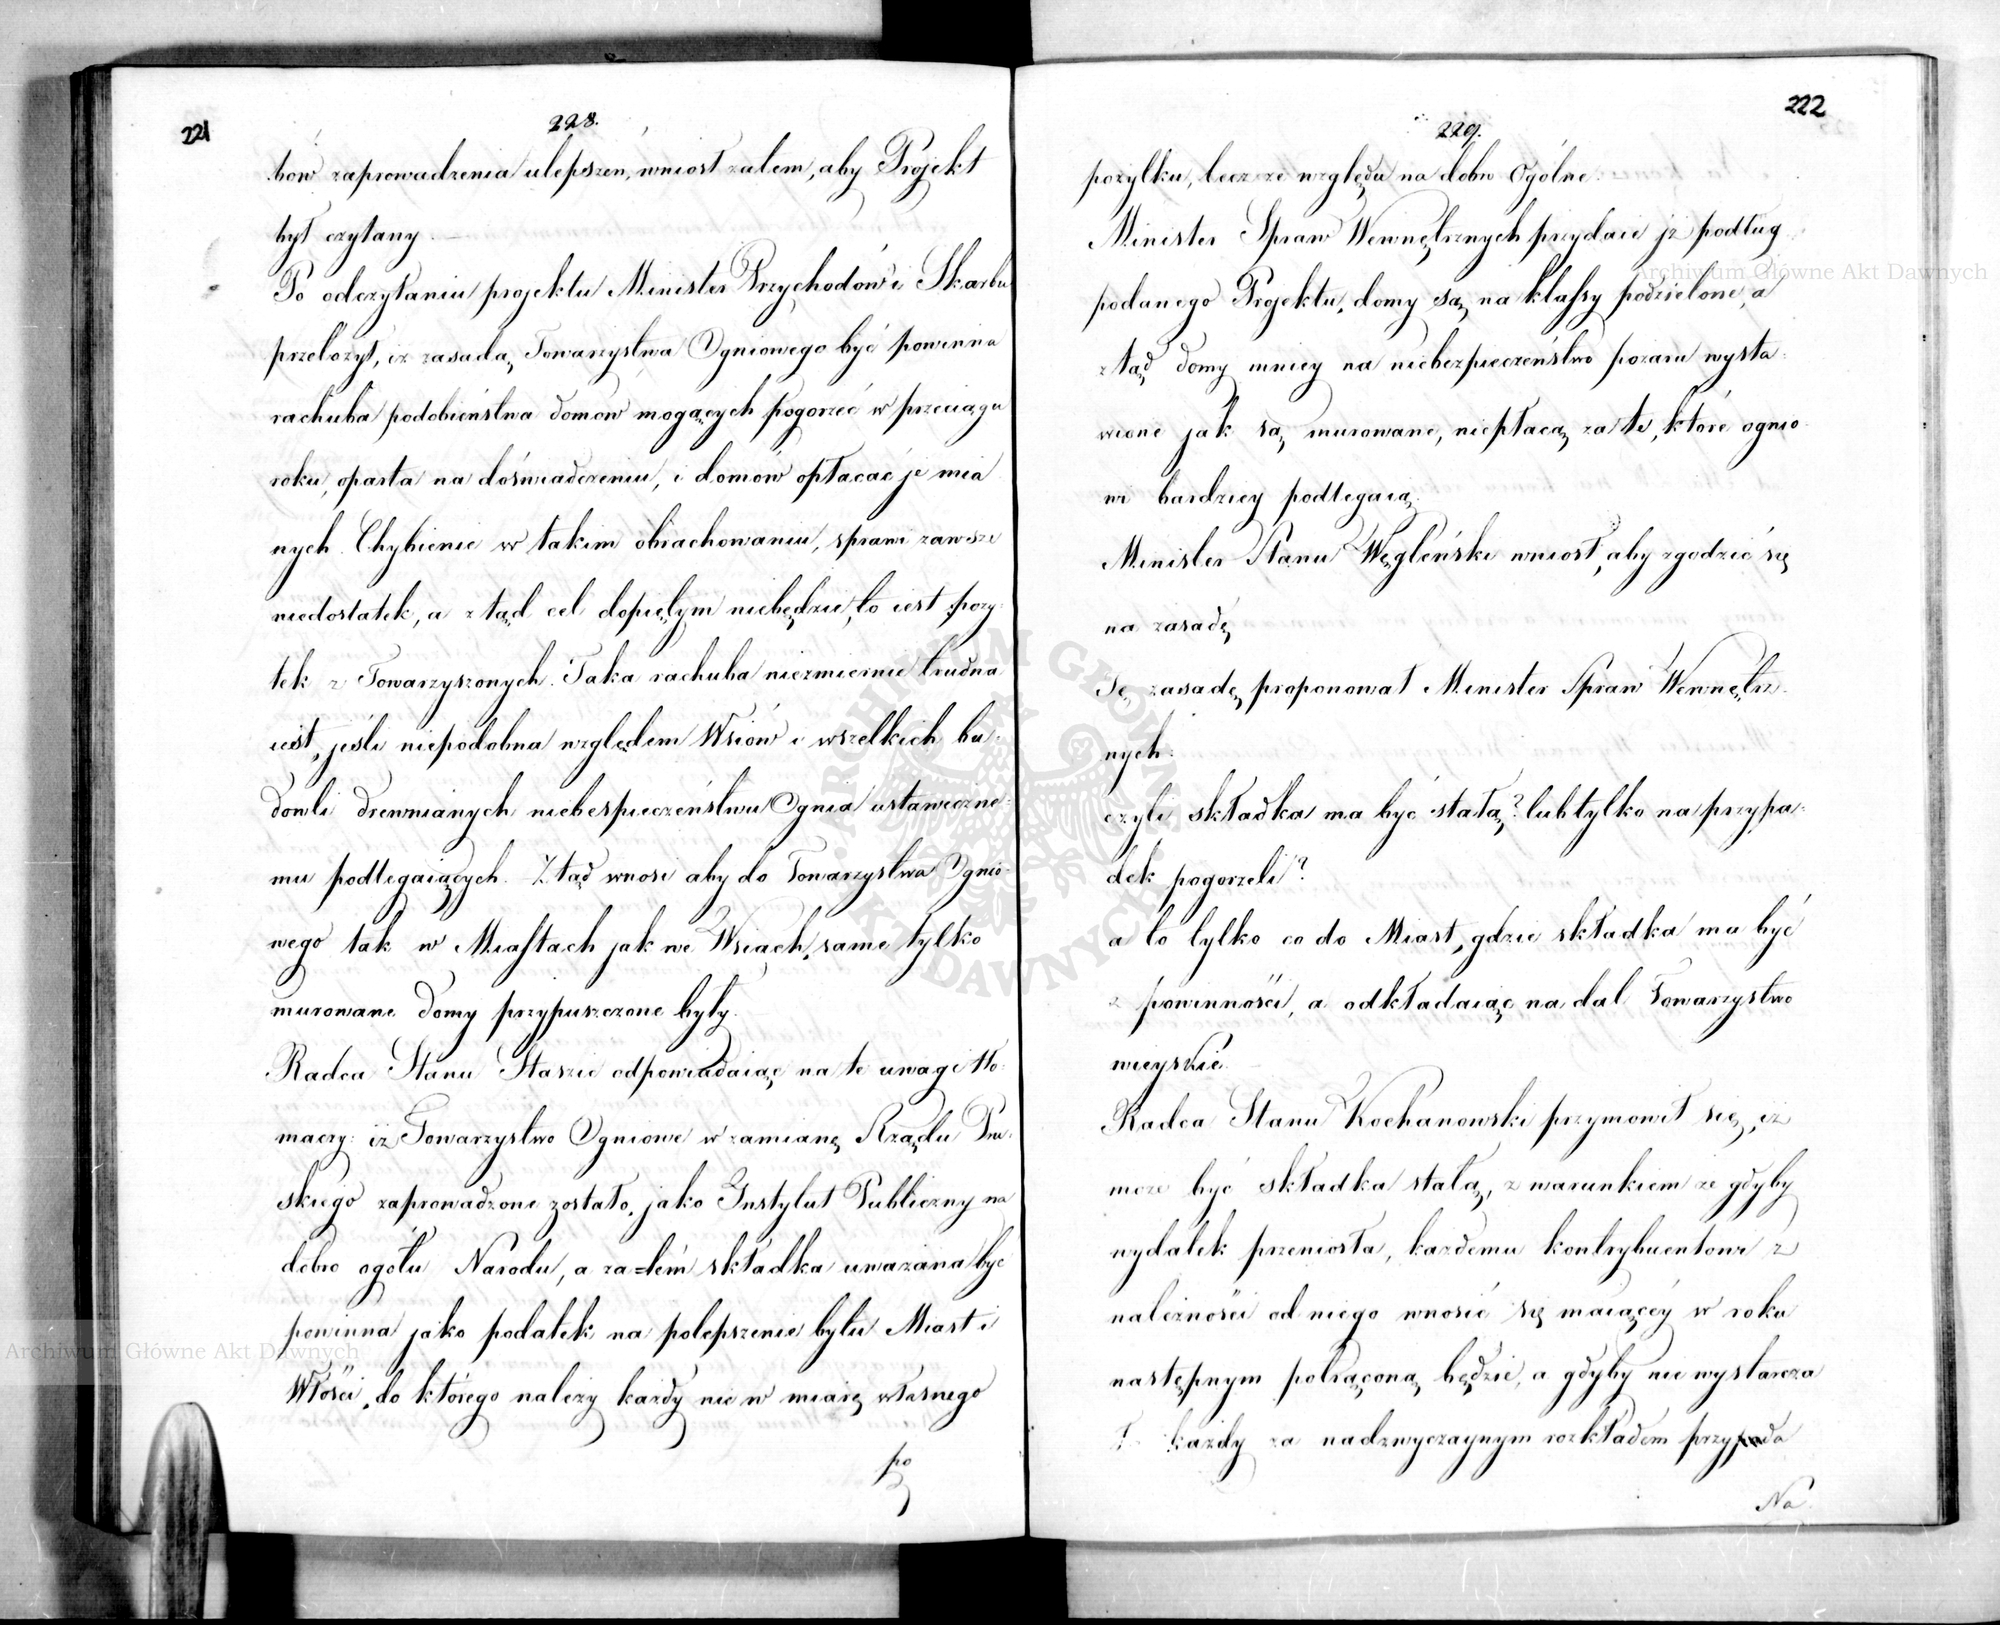 221
228.
bow zaprowadzenia ulepszeń, wniosł zatem, aby Projekt
był czytany.
Po odczytaniu projektu Minister Przychodów i Skarbu
przełożył, iż zasadą Towarzystwa Ogniowego być powinna
rachuba podobieństwa domów mogących pogorzeć w przeciągu
roku, oparta na doświadczeniu, i domów opłacać je mia
nych. Chybienie w takim obrachowaniu, sprawi zawsze
niedostatek, a ztąd cel dopiętym niebędzie, to iest pozy:
tek z Towarzyszonych. Taka rachuba niezmiernie trudna
iest, jeśli niepodobna względem Wsiów i wszelkich bu:
dowli drewnianych niebespieczeństwu Ognia ustawiczne:
mu podlegaiących. Ztąd wnosi aby do Towarzystwa Ognio:
wego tak w Miastach jak we Wsiach, same tylko
murowane domy przypuszczone były.
Radca Stanu Staszic odpowiadaiąc na te uwagi tło:
maczy: iż Towarzystwo Ogniowe w zamianę Rządu Pru:
skiego zaprowadzone zostało, jako Instytut Publiczny na
dobro ogółu Narodu, a za=tém składka uważana być
powinna jako podatek na polepszenie bytu Miast i
Włości, do którego należy każdy nie w miarę własnego
po
222
229.
pożytku, lecz ze względu na dobro Ogólne.
Minister Spraw Wewnętrznych przydaie jż podług
podanego Projektu, domy są na klassy podzielone, a
ztąd domy mniey na niebezpieczeństwo pożaru wysta:
wione jak są murowane, niepłacą za te, które ognio:
wi bardziey podlegaią.
Minister Stanu Węgleński wniosł, aby zgodzić się
na zasadę
Tę zasadę proponował Minister Spraw Wewnętrz:
nych:
czyli składka ma być stałą? lub tylko na przypa:
dek pogorzeli?
a to tylko co do Miast, gdzie składka ma być
z powinności, a odkładaiąc na dal Towarzystwo
wieyskie.
Radca Stanu Kochanowski przymowił się, iż
może być składka stałą, z warunkiem że gdyby
wydatek przeniosła, każdemu kontrybuentowi z
należności od niego wnosić się maiącéy w roku
następnym potrąconą będzie, a gdyby nie wystarcza
ł każdy za nadzwyczaynym rozkładem
Na
Archiwum Główne Akt Dawnych
Archiwum Główne Akt Dawnych
ARCHIWUM GŁÓWNE AKT DAWNYCH